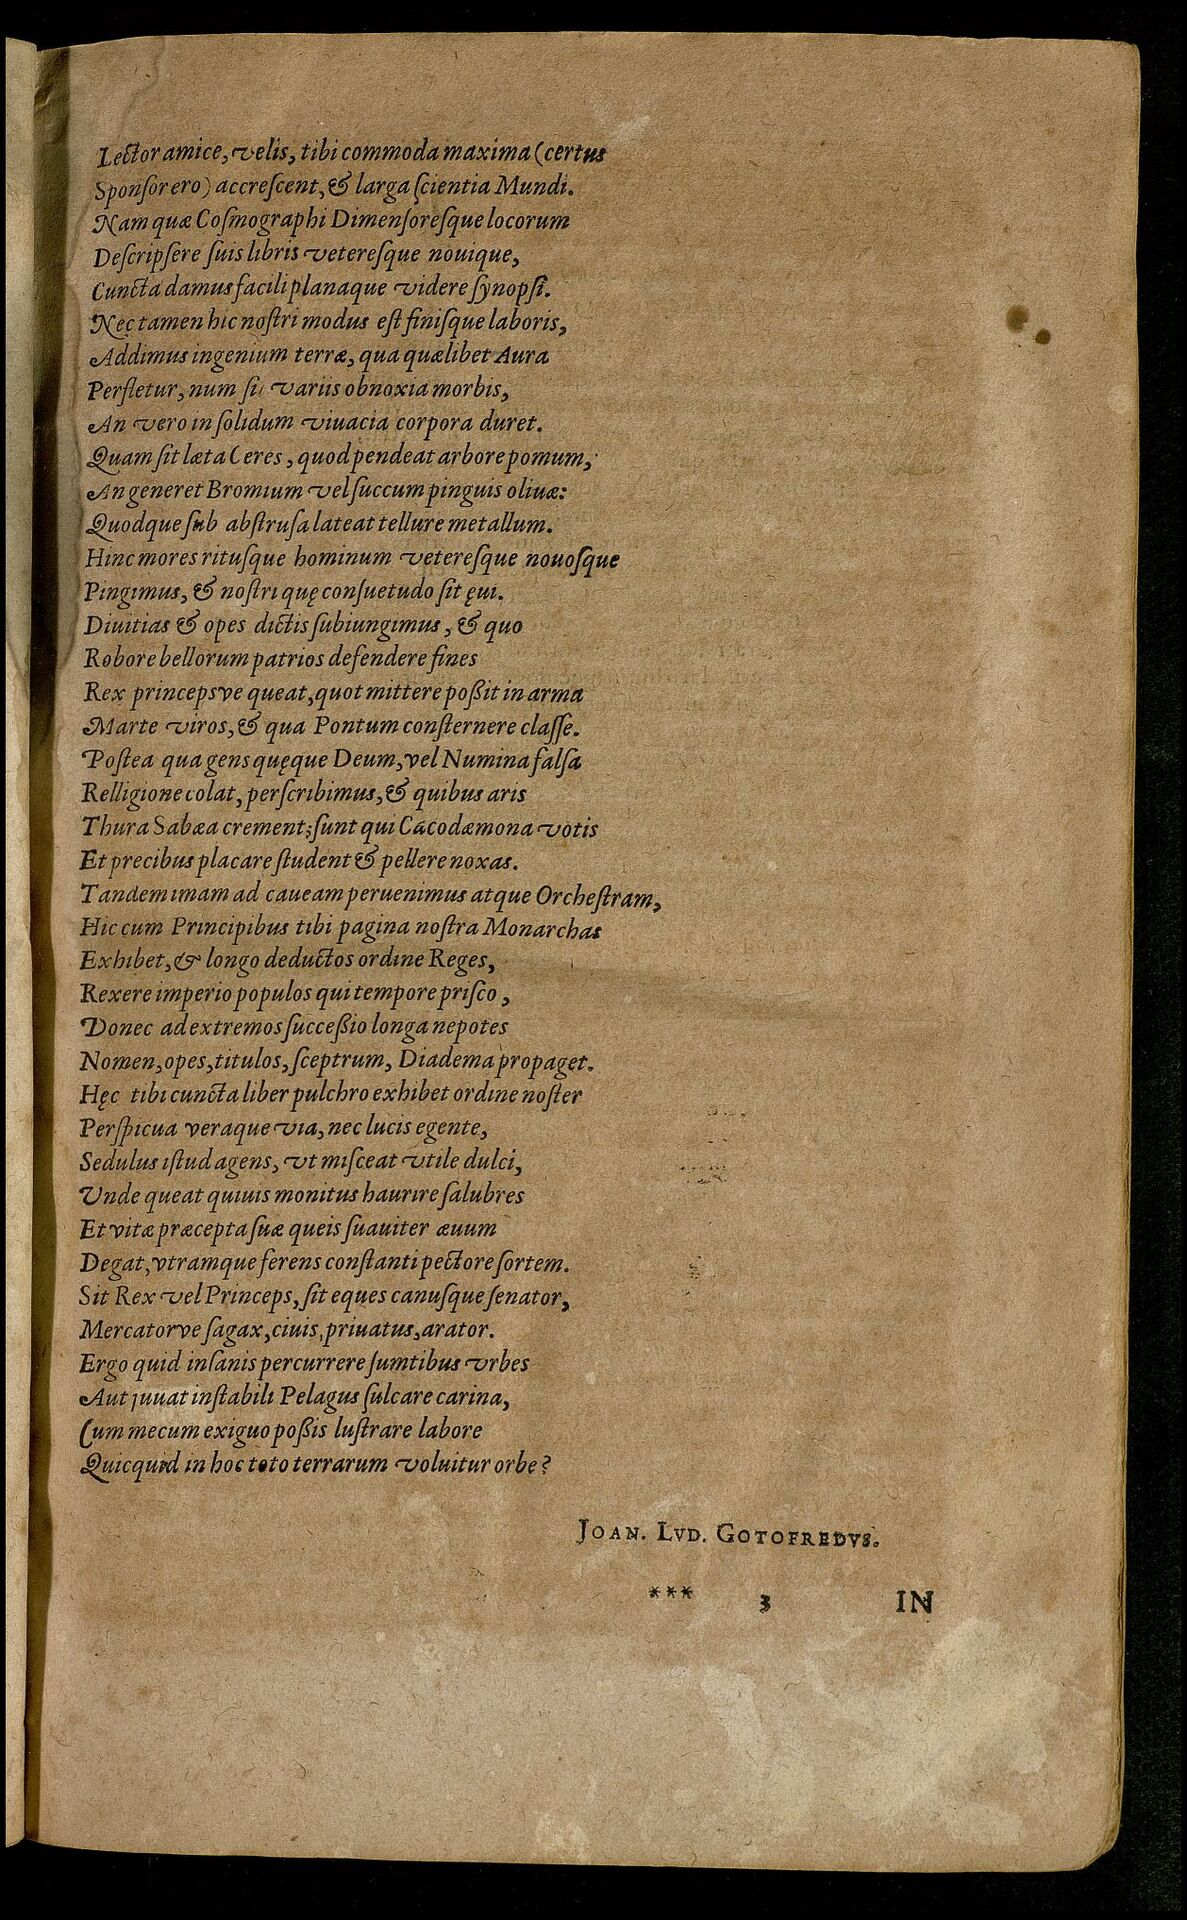 Lector amice, velis, tibi commoda maxima (certus
Sponſor ero) accreſcent, & larga ſcientia Mundi.
Nam quæ Coſmographi Dimenſoreſque locorum
Deſcripſere ſuis libris vetereſque nouique,
Cuncta damus facili planaque videre ſynopſi.
Nec tamen hic noſtri modus eſt finiſque laboris,
Addimus ingenium terræ, qua quælibet Aura
Perfletur, num ſit variis obnoxia morbis,
An vero in ſolidum viuacia corpora duret.
Quam ſit læta Ceres, quod pendeat arbore pomum,
An generet Bromium vel ſuccum pinguis oliuæ:
Quodque ſub abſtruſa lateat tellure metallum.
Hinc mores rituſque hominum vetereſque nouoſque
Pingimus, & noſtri quę conſuetudo ſit ęui.
Diuitias & opes dictis ſubiungimus, & quo
Robore bellorum patrios defendere fines
Rex princepsve queat, quot mittere poßit in arma
Marte viros, & qua Pontum conſternere claſſe.
Poſtea qua gens quęque Deum, vel Numina falſa
Relligione colat, perſcribimus, & quibus aris
Thura Sabæa crement; ſunt qui Cacodæmona votis
Et precibus placare ſtudent & pellere noxas.
Tandem imam ad caueam peruenimus atque Orcheſtram,
Hic cum Principibus tibi pagina noſtra Monarchas
Exhibet, & longo deductos ordine Reges,
Rexere imperio populos qui tempore priſco,
Donec ad extremos ſucceßio longa nepotes
Nomen, opes, titulos, ſceptrum, Diadema propaget.
Hęc tibi cuncta liber pulchro exhibet ordine noſter
Perſpicua veraque via, nec lucis egente,
Sedulus iſtud agens, vt miſceat vtile dulci,
Vnde queat quiuis monitus haurire ſalubres
Et vitæ præcepta ſuæ queis ſuauiter æuum
Degat, vtramque ferens conſtanti pectore ſortem.
Sit Rex vel Princeps, ſit eques canuſque ſenator,
Mercatorve ſagax, ciuis, priuatus, arator.
Ergo quid inſanis percurrere ſumtibus vrbes
Aut juuat inſtabili Pelagus ſulcare carina,
Cum mecum exiguo poßis luſtrare labore
Quicquid in hoc toto terrarum voluitur orbe?
JOAN. LVD. GOTOFREDVS.
*** 3 IN